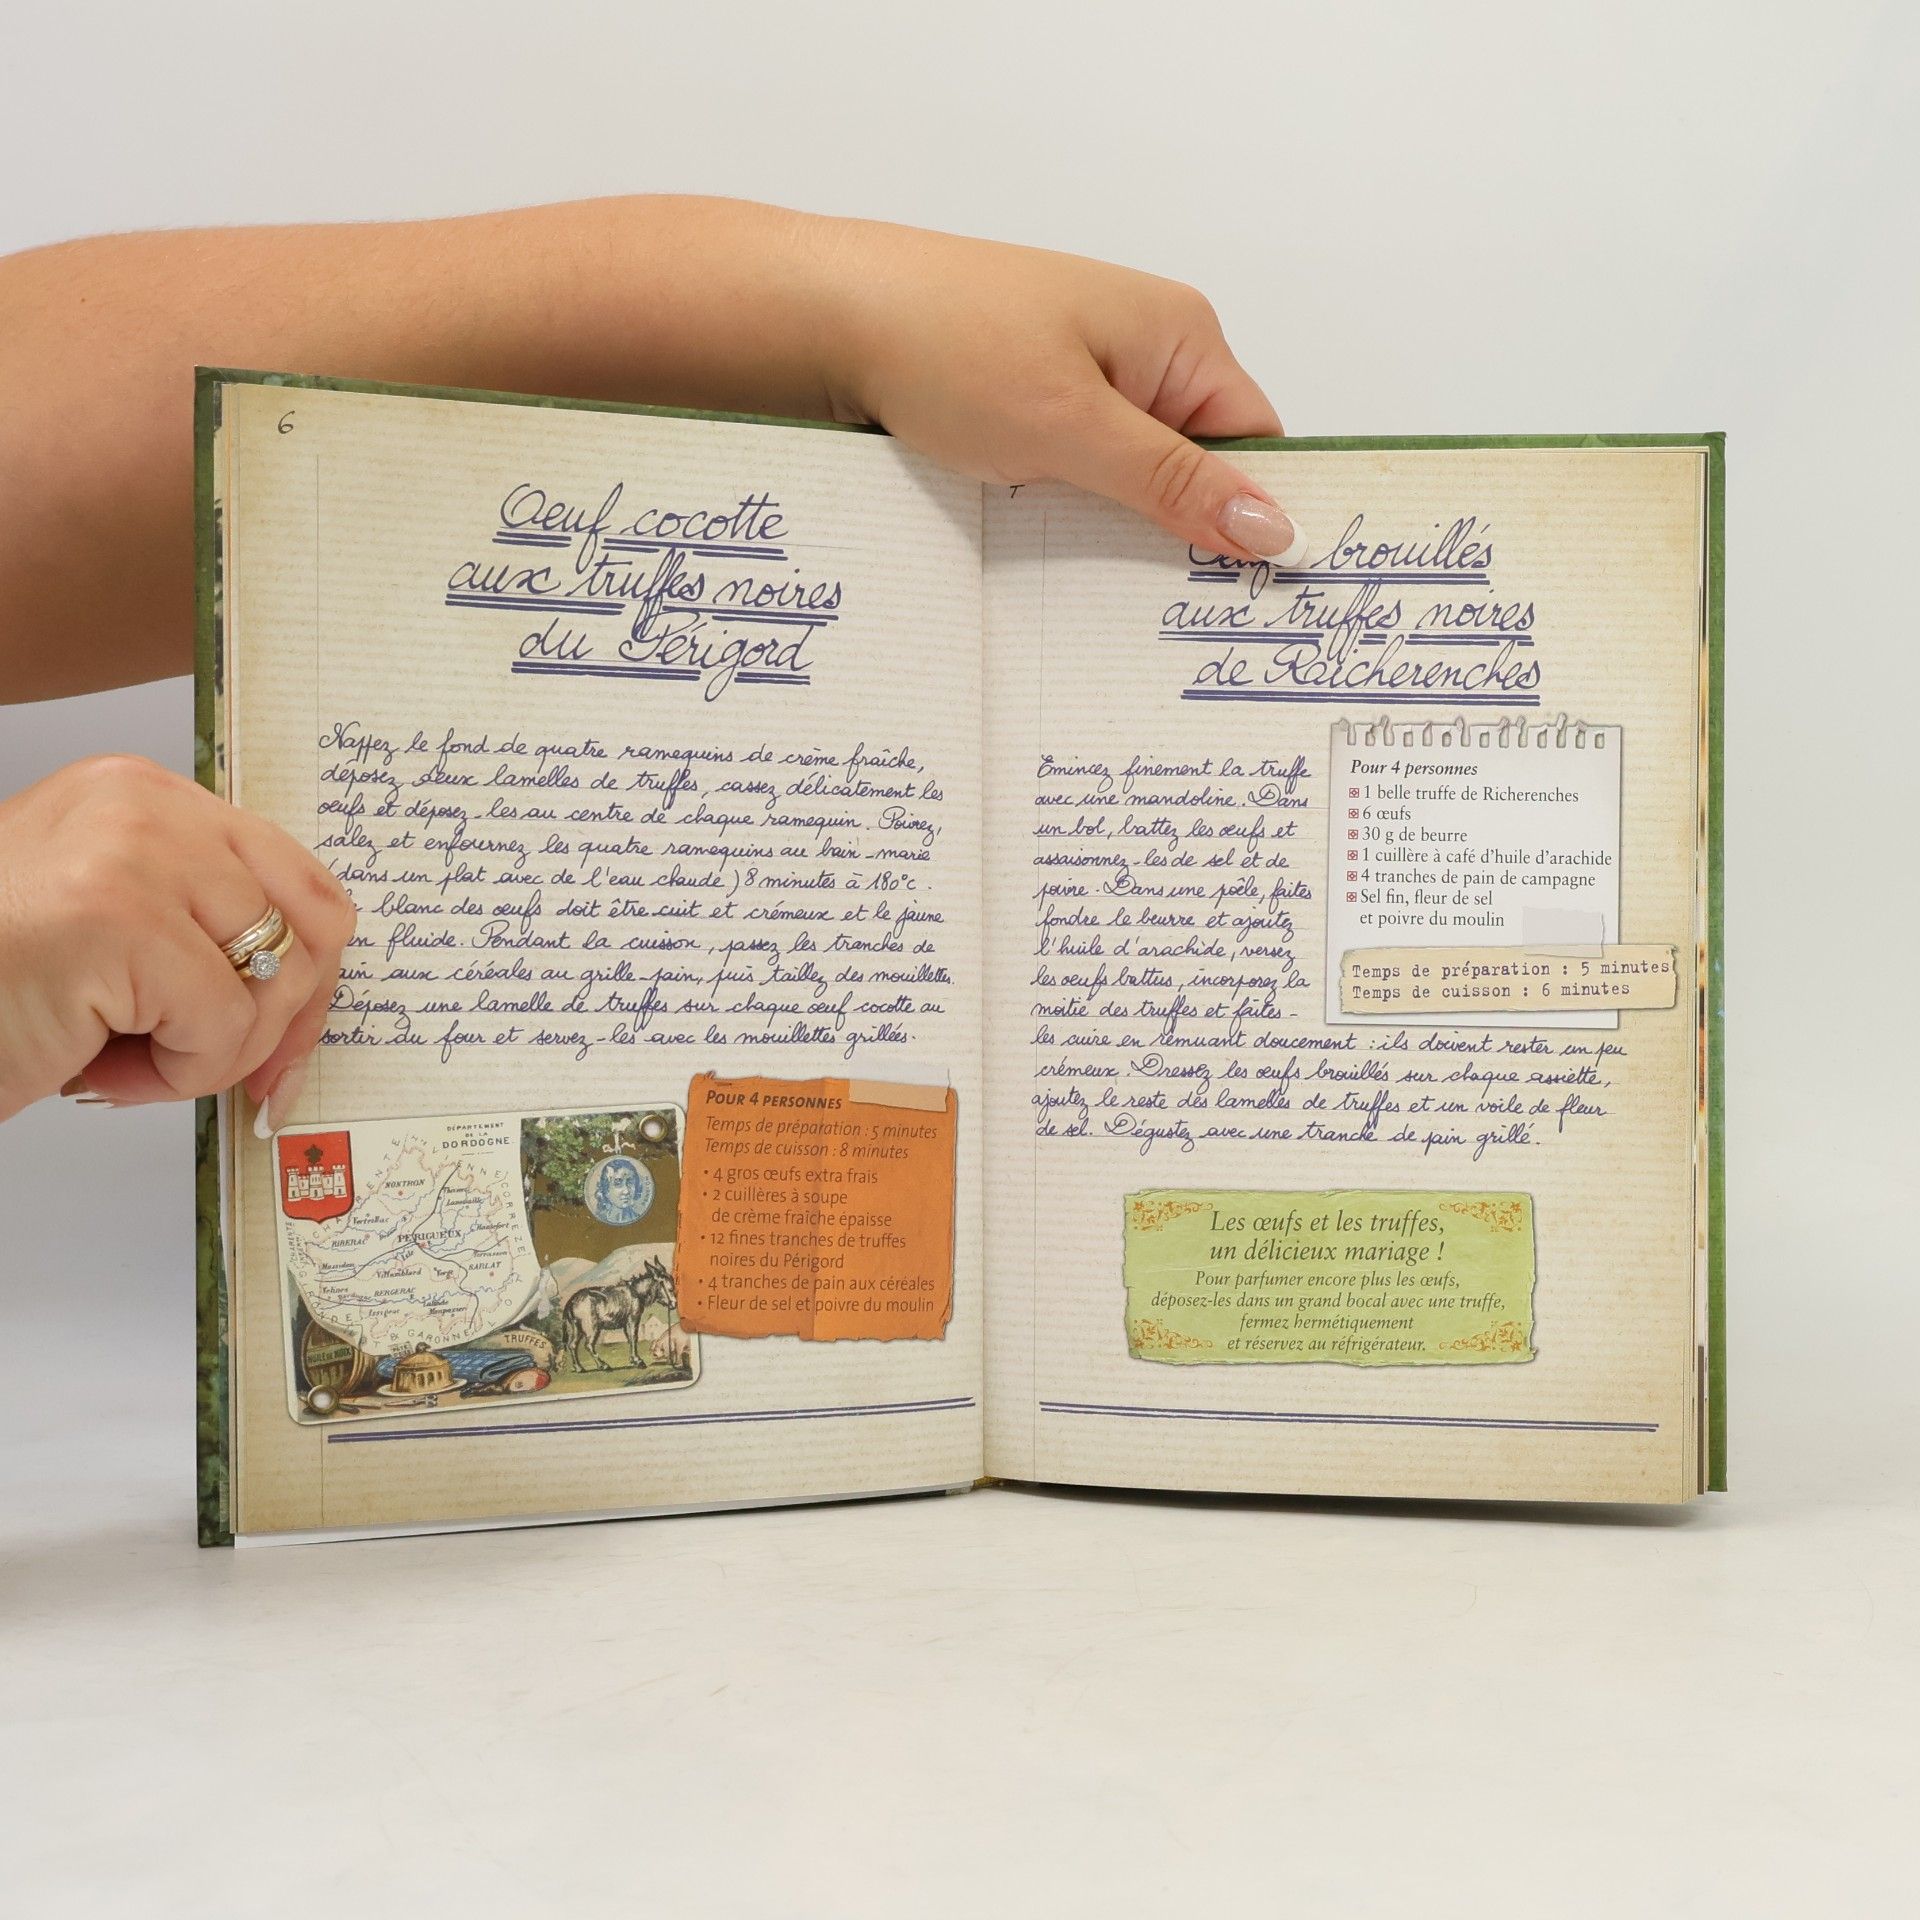 6
Oeuf cocotte
aux truffes noires
du Périgord
Nappez le fond de quatre ramequins de crème fraîche,
déposez deux lamelles de truffes, cassez délicatement les
œufs et déposez-les au centre de chaque ramequin. Poivrez,
salez et enfournez les quatre ramequins au bain-marie
(dans un plat avec de l'eau chaude) 8 minutes à 180°c.
blanc des œufs doit être cuit et crémeux et le jaune
en fluide. Pendant la cuisson, passez les tranches de
ain aux céréales au grille-pain, puis taillez des mouillettes.
Déposez une lamelle de truffes sur chaque œuf cocotte au
sortir du four et servez-les avec les mouillettes grillées.
DÉPARTEMENT
DE LA
DORDOGNE
NONTRON
PÉRIGUEUX
RIBÉRAC
SARLAT
BERGERAC
CORRÈZE
GIRONDE
& GARONNE
TRUFFES
HUILE DE NOIX
POUR 4 PERSONNES
Temps de préparation : 5 minutes
Temps de cuisson : 8 minutes
• 4 gros œufs extra frais
• 2 cuillères à soupe
de crème fraîche épaisse
• 12 fines tranches de truffes
noires du Périgord
• 4 tranches de pain aux céréales
• Fleur de sel et poivre du moulin
brouillés
aux truffes noires
de Raicherenches
Emincez finement la truffe
avec une mandoline. Dans
un bol, battez les œufs et
assaisonnez-les de sel et de
poivre. Dans une poêle, faites
fondre le beurre et ajoutez
l'huile d'arachide, versez
les oeufs battus, incorporez la
moitié des truffes et faites-
les cuire en remuant doucement : ils doivent rester un peu
crémeux. Dressez les œufs brouillés sur chaque assiette,
ajoutez le reste des lamelles de truffes et un voile de fleur
de sel. Dégustez avec une tranche de pain grillé.
Pour 4 personnes
1 belle truffe de Richerenches
6 œufs
30 g de beurre
1 cuillère à café d'huile d'arachide
4 tranches de pain de campagne
Sel fin, fleur de sel
et poivre du moulin
Temps de préparation : 5 minutes
Temps de cuisson : 6 minutes
Les œufs et les truffes,
un délicieux mariage !
Pour parfumer encore plus les œufs,
déposez-les dans un grand bocal avec une truffe,
fermez hermétiquement
et réservez au réfrigérateur.